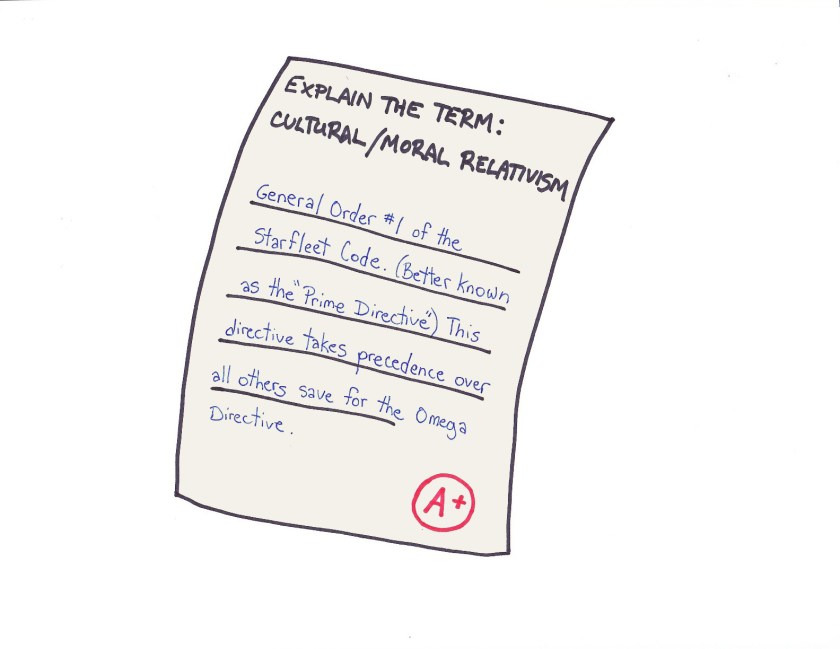 EXPLAIN THE TERM:
CULTURAL/MORAL RELATIVISM
General Order #1 of the
Starfleet Code. (Better known
as the "Prime Directive") This
directive takes precedence over
all others save for the Omega
Directive.
A+